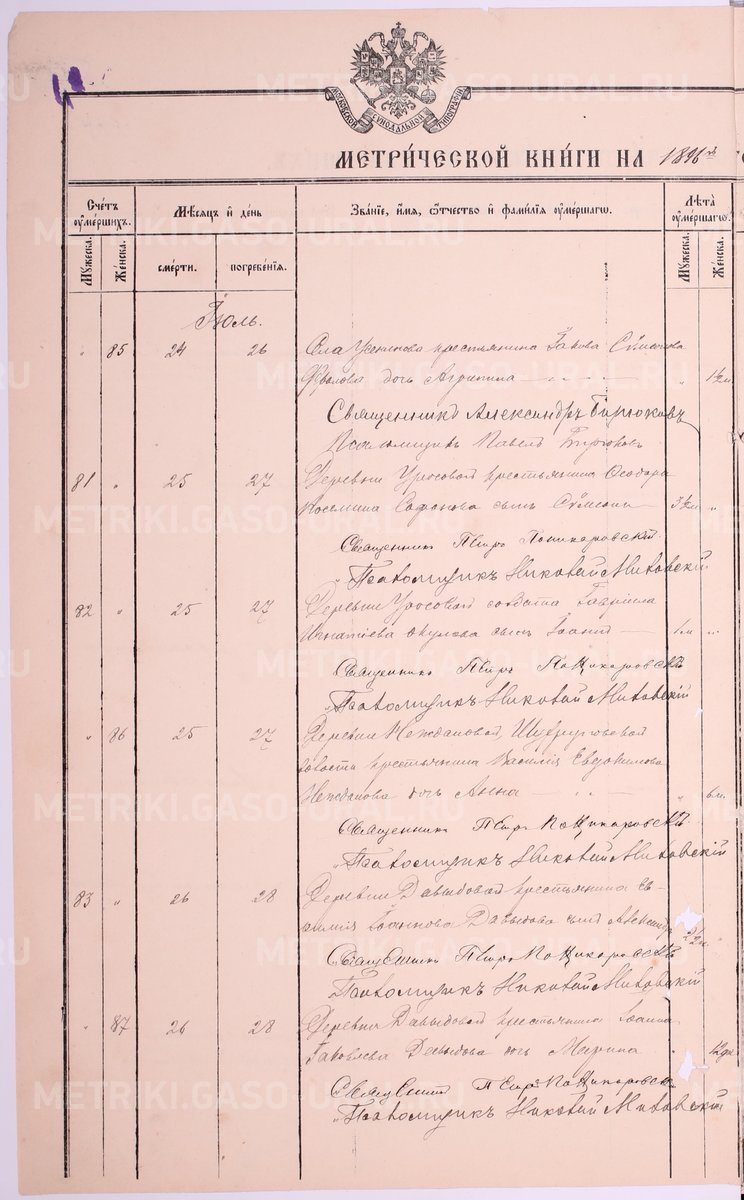 МОСКОВСКОЙ СѴНОДАЛЬНОЙ ТИПОГРАФІИ
МЕТРИ́ЧЕСКОЙ КНИ́ГИ НА 1896й
Сче́тъ ᲂу҆ме́ршихъ.
Мѣ́сяцъ и҆ де́нь
Зва́нїе, и҆́мя, ѻ҆́тчество и҆ фами́лїя ᲂу҆ме́ршагѡ.
Лѣ́та ᲂу҆ме́ршагѡ.
Му́жеска.
Же́нска.
сме́рти.
погребе́нїя.
Му́жеска.
Же́нска.
Іюль.
„ 85 24 26 Села крестьянина Іакова Сѵмеонова
дочь Агрипина „ 1½ м.
Священникъ Александръ Бирюковъ
Псаломщикъ Павелъ Бирюковъ
81 „ 25 27 Деревни Уросовой крестьянина Ѳеодора
Космина Сафонова сынъ Сѵмеонъ 3½ м. „
Священникъ Петръ Поникаровскій
Псаломщикъ Николай Миловскій
82 „ 25 27 Деревни Уросовой солдата Гавріила
Игнатіева Окулова сынъ Іоаннъ 1 м. „
Священникъ Петръ Поникаровскій
Псаломщикъ Николай Миловскій
„ 86 25 27 Деревни Неждановой,
волости крестьянина Василія Евдокимова
Нежданова дочь Анна „ 6 м.
Священникъ Петръ Поникаровскій
Псаломщикъ Николай Миловскій
83 „ 26 28 Деревни Давыдовой крестьянина Ев-
фимія Іоаннова Давыдова сынъ Александръ 2½ м.
Священникъ Петръ Поникаровскій
Псаломщикъ Николай Миловскій
„ 87 26 28 Деревни Давыдовой крестьянина Іоанна
Іаковлева Давыдова дочь Марина „ 12 дн.
Священникъ Петръ Поникаровскій
Псаломщикъ Николай Миловскій
METRIKI.GASO-URAL.RU